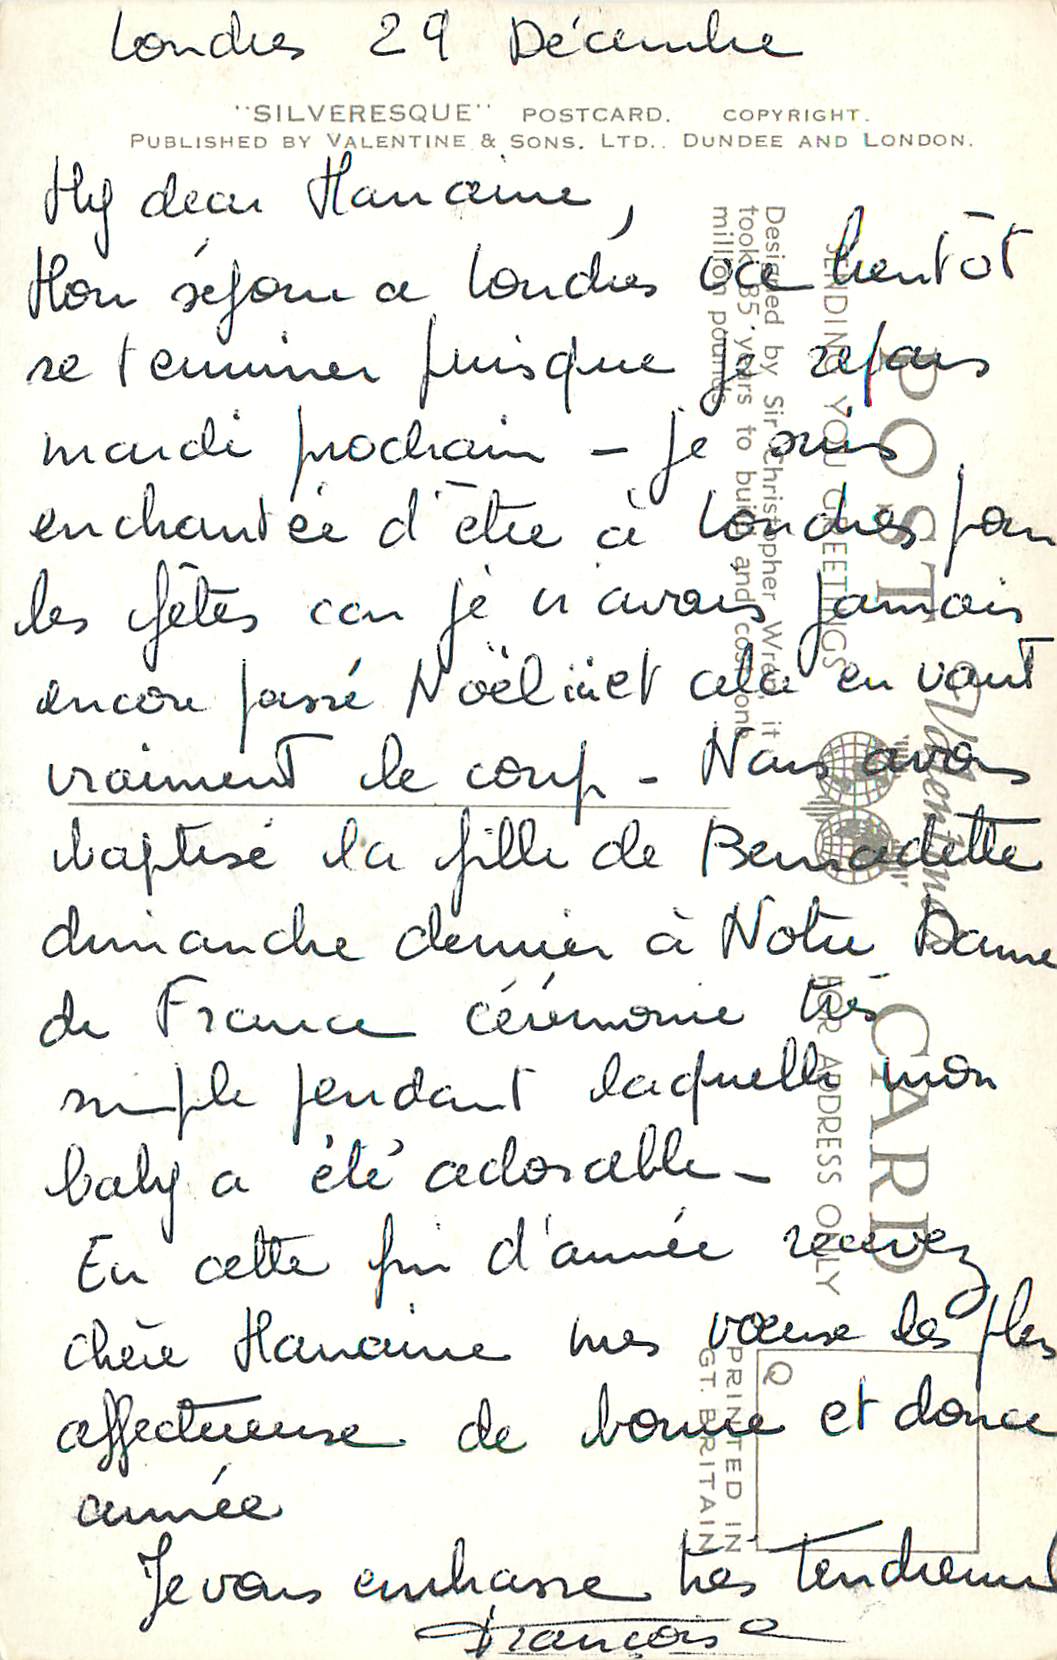 Londres 29 Décembre
"SILVERESQUE" POSTCARD. COPYRIGHT.
PUBLISHED BY VALENTINE & SONS. LTD., DUNDEE AND LONDON.
My dear Marraine,
Mon séjour a Londres va bientôt
se terminer puisque je repars
mardi prochain – je suis
enchantée d'être à Londres pour
les fêtes car je n'avais jamais
encore passé Noël ici et cela en vaut
vraiment le coup – Nous avons
baptisé la fille de Bernadette
dimanche dernier à Notre Dame
de France cérémonie très
simple pendant laquelle mon
baby a été adorable –
En cette fin d'année recevez
chère Marraine mes voeux les plus
affectueux de bonne et douce
année
Je vous embrasse très tendrement
Françoise
POST CARD
SENDING YOU GREETINGS
FOR ADDRESS ONLY
Valentine
Designed by Sir Christopher Wren, it
took 35 years to build and cost one
million pounds
Q
PRINTED IN
GT. BRITAIN